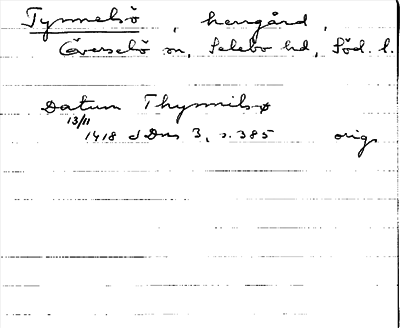 Tynnelsö, herrgård,
Överselö sn, Selebo hd, Söd. l.
Datum Thynnilsø
13/11
1418 d Dns 3, s. 385 orig.